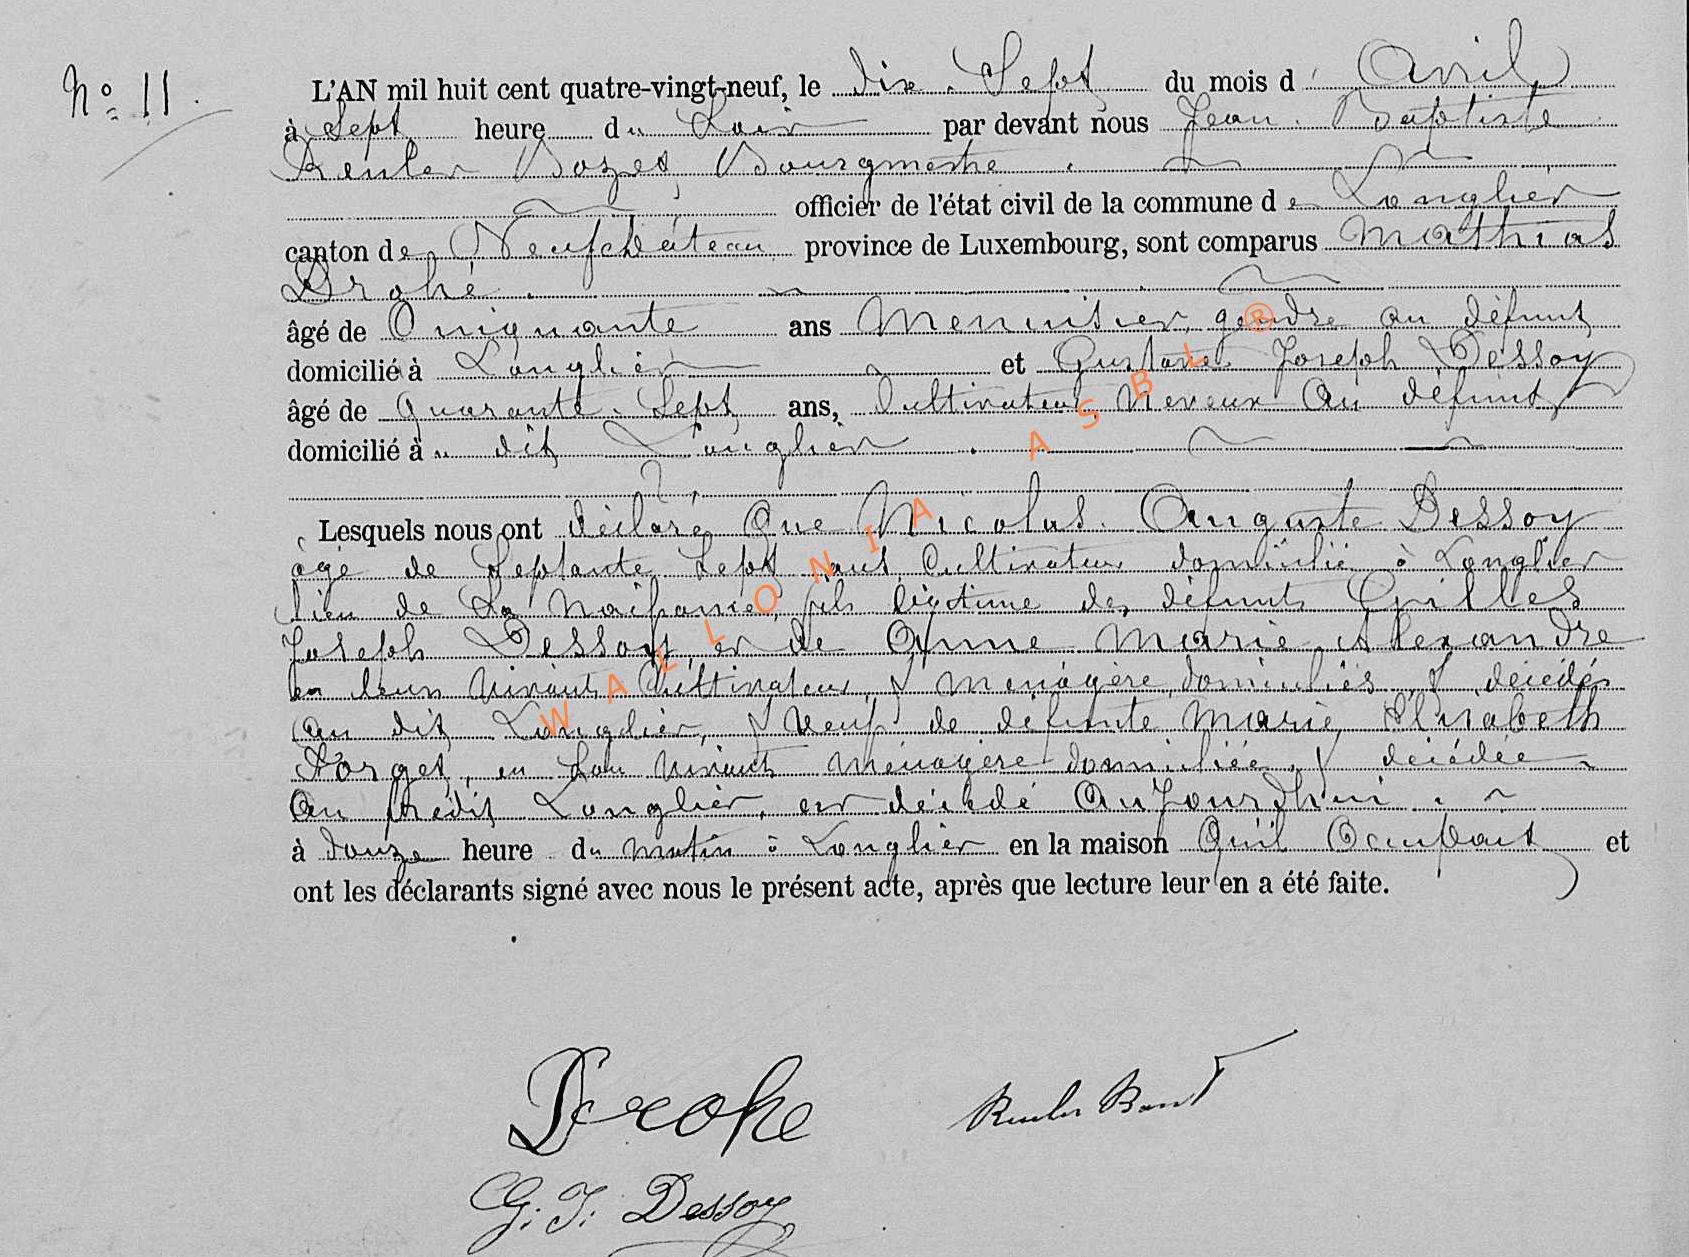 N° 11.
L'AN mil huit cent quatre-vingt-neuf, le dix-Sept du mois d' Avril
à Sept heure du Soir par devant nous Jean-Baptiste
Reuler Bourgmestre
officier de l'état civil de la commune de Longlier
canton de Neufchâteau province de Luxembourg, sont comparus Mathias
Drohé
âgé de Cinquante ans Menuisier, gendre au défunt
domicilié à Longlier et Gustave Joseph Dessoy
âgé de quarante-Sept ans, Cultivateur, Neveux Au défunt
domicilié à u dit Longlier
Lesquels nous ont déclaré Que Nicolas Auguste Dessoy
âgé de Septante Sept ans Cultivateur domicilié à Longlier
lieu de Sa Naissance, fils légitime des défunts Gilles
Joseph Dessoy, et de Anne Marie Alexandre
en leur vivants Cultivateur, & ménagère, domiciliés, & décédés
au dit Longlier, & Veuf de défunte Marie Elisabeth
en son vivant ménagère domiciliée, & décédée
Au prédit Longlier, est décédé Aujourdhui
à douze heure du matin à Longlier en la maison Qu'il Occupait et
ont les déclarants signé avec nous le présent acte, après que lecture leur en a été faite.
Drohé
G. J. Dessoy
WALLONIA ASBL ®